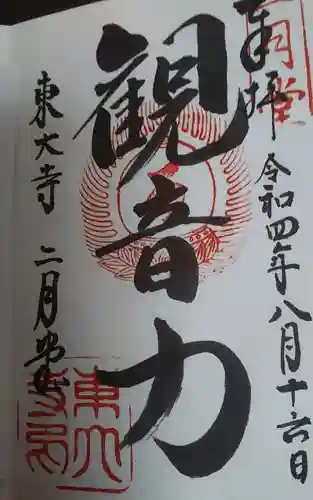 奉拝
令和四年八月十六日
観音力
東大寺 二月堂
二月堂